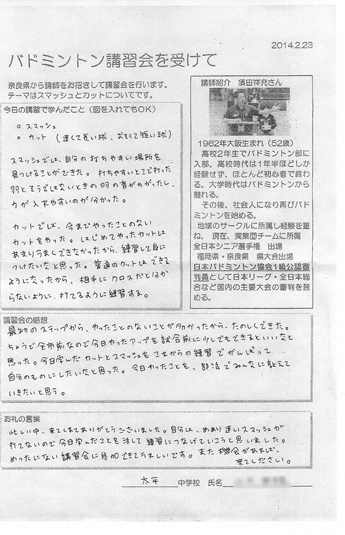 2014.2.23
バドミントン講習会を受けて
奈良県から講師をお招きして講習会を行います。
テーマはスマッシュとカットについてです。
今日の講習で学んだこと（図を入れてもOK）
○ スマッシュ
○ カット（速くて長い球、おそくて短い球）
スマッシュでは、自分の打ちやすい場所を
見つけることができた。打ちやすいとこで打った
羽とそうではないときの羽の音がちがったし、
カットでは、今までやったことのない
カットをやった。はじめてやったカットは
あまりうまくできなかったから、練習して身に
つけたいなと思った。普通のカットはできて
ようになったから、相手にクロスだと分か
らないように、打てるように練習する。
講師紹介 須田祥充さん
1962年大阪生まれ（52歳）
高校2年生でバドミントン部に
入部。高校時代は1年半ほどしか
経験せず、ほとんど初心者で終わ
る。大学時代はバドミントンから
離れる。
その後、社会人になり再びバド
ミントンを始める。
地域のサークルに所属し経験を重
ね、現在、実業団チームに所属
全日本シニア選手権 出場
福岡県・奈良県 県大会出場
日本バドミントン協会1級公認審
判員として日本リーグ・全日本総
合など国内の主要大会の審判を務
める。
講習会の感想
最初のステップから、やったことのないことが多かったから、たのしくできた。
ちょうど全市前なので今日やったアップを試合前に少しでもできるといいなと
思った。今日学んだカットとスマッシュをこれからの練習でがんばって
自分のものにしたいなと思った。今日やったことを、部活でみんなに教えて
いきたいと思う。
お礼の言葉
忙しい中、来てくれてありがとうございました。自分は、あまり速いスマッシュが
打てないので今日学んだことを活して練習につなげていこうと思いました。
めったにない講習会に参加できてうれしいです。また機会があれば、
来てください。
中学校 氏名